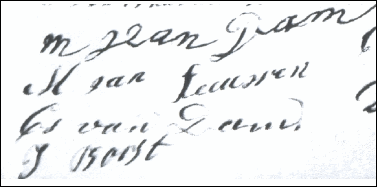 M van Dam
M van Leussen
Cs van Dam
J Boost